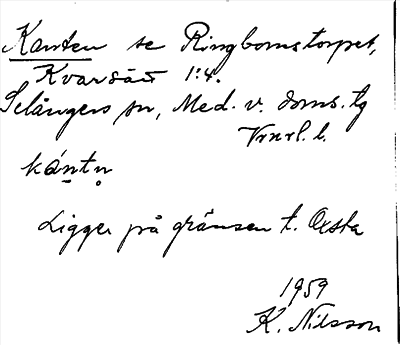 Kanten se Ringbomstorpet,
Kvarsätt 1:4.
Selångers sn, Med. v. doms. tg
Vrnrl. l.
kántn̥
Ligger på gränsen t. Oxsta
1959
K. Nilsson